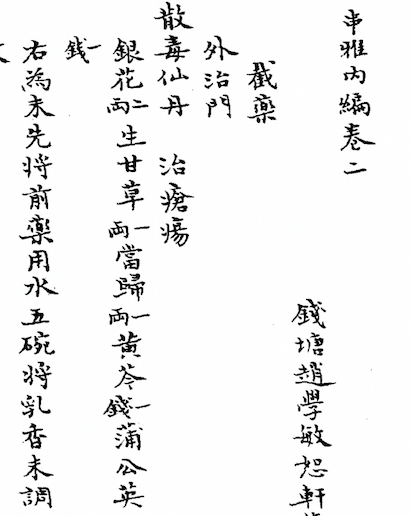 串雅內編卷二
錢塘趙學敏恕軒
截藥
外治門
散毒仙丹 治瘡瘍
銀花二兩生甘草一兩當歸一兩黃芩一錢蒲公英
一錢
右為末先將前藥用水五碗將乳香末調